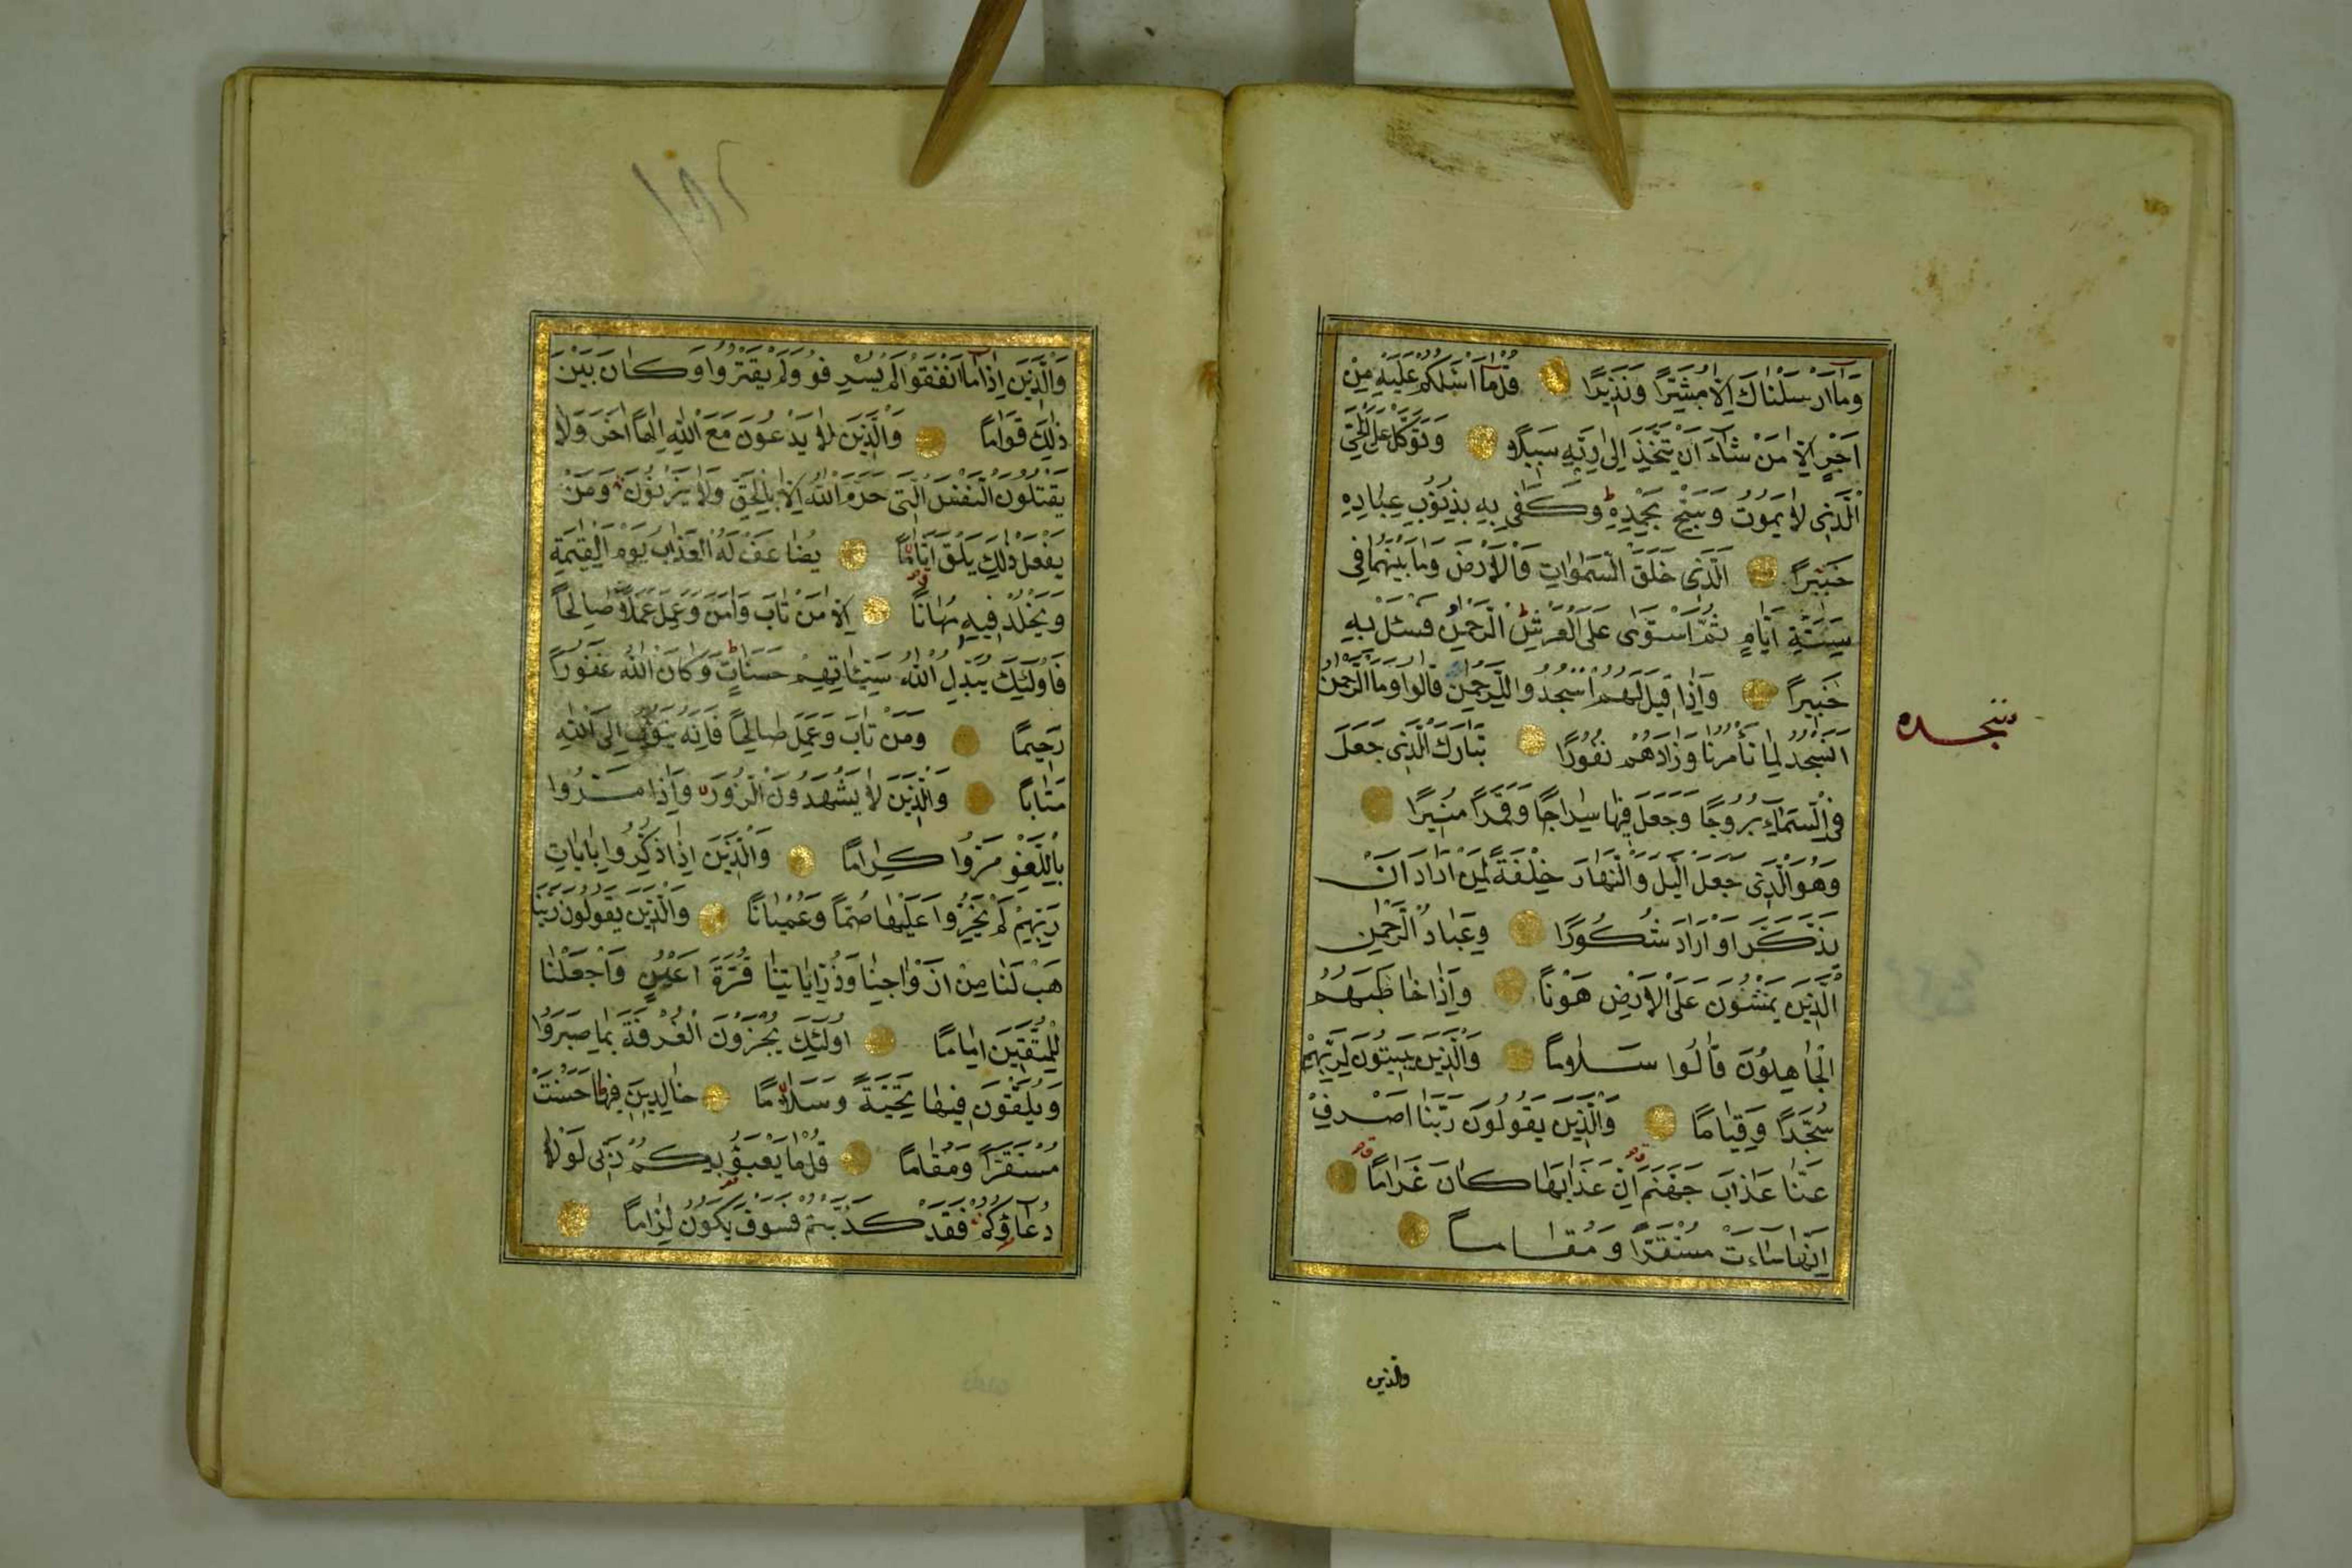 وَمَا اَرْسَلْنَاكَ اِلَّا مُبَشِّرًا وَنَذِيرًا قُلْ مَا اَسْئَلُكُمْ عَلَيْهِ مِنْ
اَجْرٍ اِلَّا مَنْ شَاءَ اَنْ يَتَّخِذَ اِلٰى رَبِّهِ سَبِيلًا وَتَوَكَّلْ عَلَى الْحَيِّ
الَّذِى لَا يَمُوتُ وَسَبِّحْ بِحَمْدِهِ ط وَكَفٰى بِهِ بِذُنُوبِ عِبَادِهِ
خَبِيرًا اَلَّذِى خَلَقَ السَّمٰوَاتِ وَالْاَرْضَ وَمَا بَيْنَهُمَا فِى
سِتَّةِ اَيَّامٍ ثُمَّ اسْتَوٰى عَلَى الْعَرْشِ ط الرَّحْمٰنُ فَسْئَلْ بِهِ
خَبِيرًا وَاِذَا قِيلَ لَهُمُ اسْجُدُوا لِلرَّحْمٰنِ قَالُوا وَمَا الرَّحْمٰنُ
اَنَسْجُدُ لِمَا تَأْمُرُنَا وَزَادَهُمْ نُفُورًا تَبَارَكَ الَّذِى جَعَلَ
سجده
فِى السَّمَاءِ بُرُوجًا وَجَعَلَ فِيهَا سِرَاجًا وَقَمَرًا مُنِيرًا
وَهُوَ الَّذِى جَعَلَ الَّيْلَ وَالنَّهَارَ خِلْفَةً لِمَنْ اَرَادَ اَنْ
يَذَّكَّرَ اَوْ اَرَادَ شُكُورًا وَعِبَادُ الرَّحْمٰنِ
الَّذِينَ يَمْشُونَ عَلَى الْاَرْضِ هَوْنًا وَاِذَا خَاطَبَهُمُ
الْجَاهِلُونَ قَالُوا سَلَامًا وَالَّذِينَ يَبِيتُونَ لِرَبِّهِمْ
سُجَّدًا وَقِيَامًا وَالَّذِينَ يَقُولُونَ رَبَّنَا اصْرِفْ
عَنَّا عَذَابَ جَهَنَّمَ اِنَّ عَذَابَهَا كَانَ غَرَامًا
اِنَّهَا سَاءَتْ مُسْتَقَرًّا وَمُقَامًا
والذين
١٩٢
وَالَّذِينَ اِذَا اَنْفَقُوا لَمْ يُسْرِفُو وَلَمْ يَقْتُرُوا وَكَانَ بَيْنَ
ذٰلِكَ قَوَامًا وَالَّذِينَ لَا يَدْعُونَ مَعَ اللّٰهِ اِلٰهًا اٰخَرَ وَلَا
يَقْتُلُونَ النَّفْسَ الَّتِى حَرَّمَ اللّٰهُ اِلَّا بِالْحَقِّ وَلَا يَزْنُونَ وَمَنْ
يَفْعَلْ ذٰلِكَ يَلْقَ اَثَامًا يُضَاعَفْ لَهُ الْعَذَابُ يَوْمَ الْقِيٰمَةِ
وَيَخْلُدْ فِيهِ مُهَانًا اِلَّا مَنْ تَابَ وَاٰمَنَ وَعَمِلَ عَمَلًا صَالِحًا
فَاُولٰئِكَ يُبَدِّلُ اللّٰهُ سَيِّئَاتِهِمْ حَسَنَاتٍ ط وَكَانَ اللّٰهُ غَفُورًا
رَحِيمًا وَمَنْ تَابَ وَعَمِلَ صَالِحًا فَاِنَّهُ يَتُوبُ اِلَى اللّٰهِ
مَتَابًا وَالَّذِينَ لَا يَشْهَدُونَ الزُّورَ وَاِذَا مَرُّوا
بِاللَّغْوِ مَرُّوا كِرَامًا وَالَّذِينَ اِذَا ذُكِّرُوا بِاٰيَاتِ
رَبِّهِمْ لَمْ يَخِرُّوا عَلَيْهَا صُمًّا وَعُمْيَانًا وَالَّذِينَ يَقُولُونَ رَبَّنَا
هَبْ لَنَا مِنْ اَزْوَاجِنَا وَذُرِّيَّاتِنَا قُرَّةَ اَعْيُنٍ وَاجْعَلْنَا
لِلْمُتَّقِينَ اِمَامًا اُولٰئِكَ يُجْزَوْنَ الْغُرْفَةَ بِمَا صَبَرُوا
وَيُلَقَّوْنَ فِيهَا تَحِيَّةً وَسَلَامًا خَالِدِينَ فِيهَا حَسُنَتْ
مُسْتَقَرًّا وَمُقَامًا قُلْ مَا يَعْبَؤُ بِكُمْ رَبِّى لَوْلَا
دُعَاؤُكُمْ فَقَدْ كَذَّبْتُمْ فَسَوْفَ يَكُونُ لِزَامًا